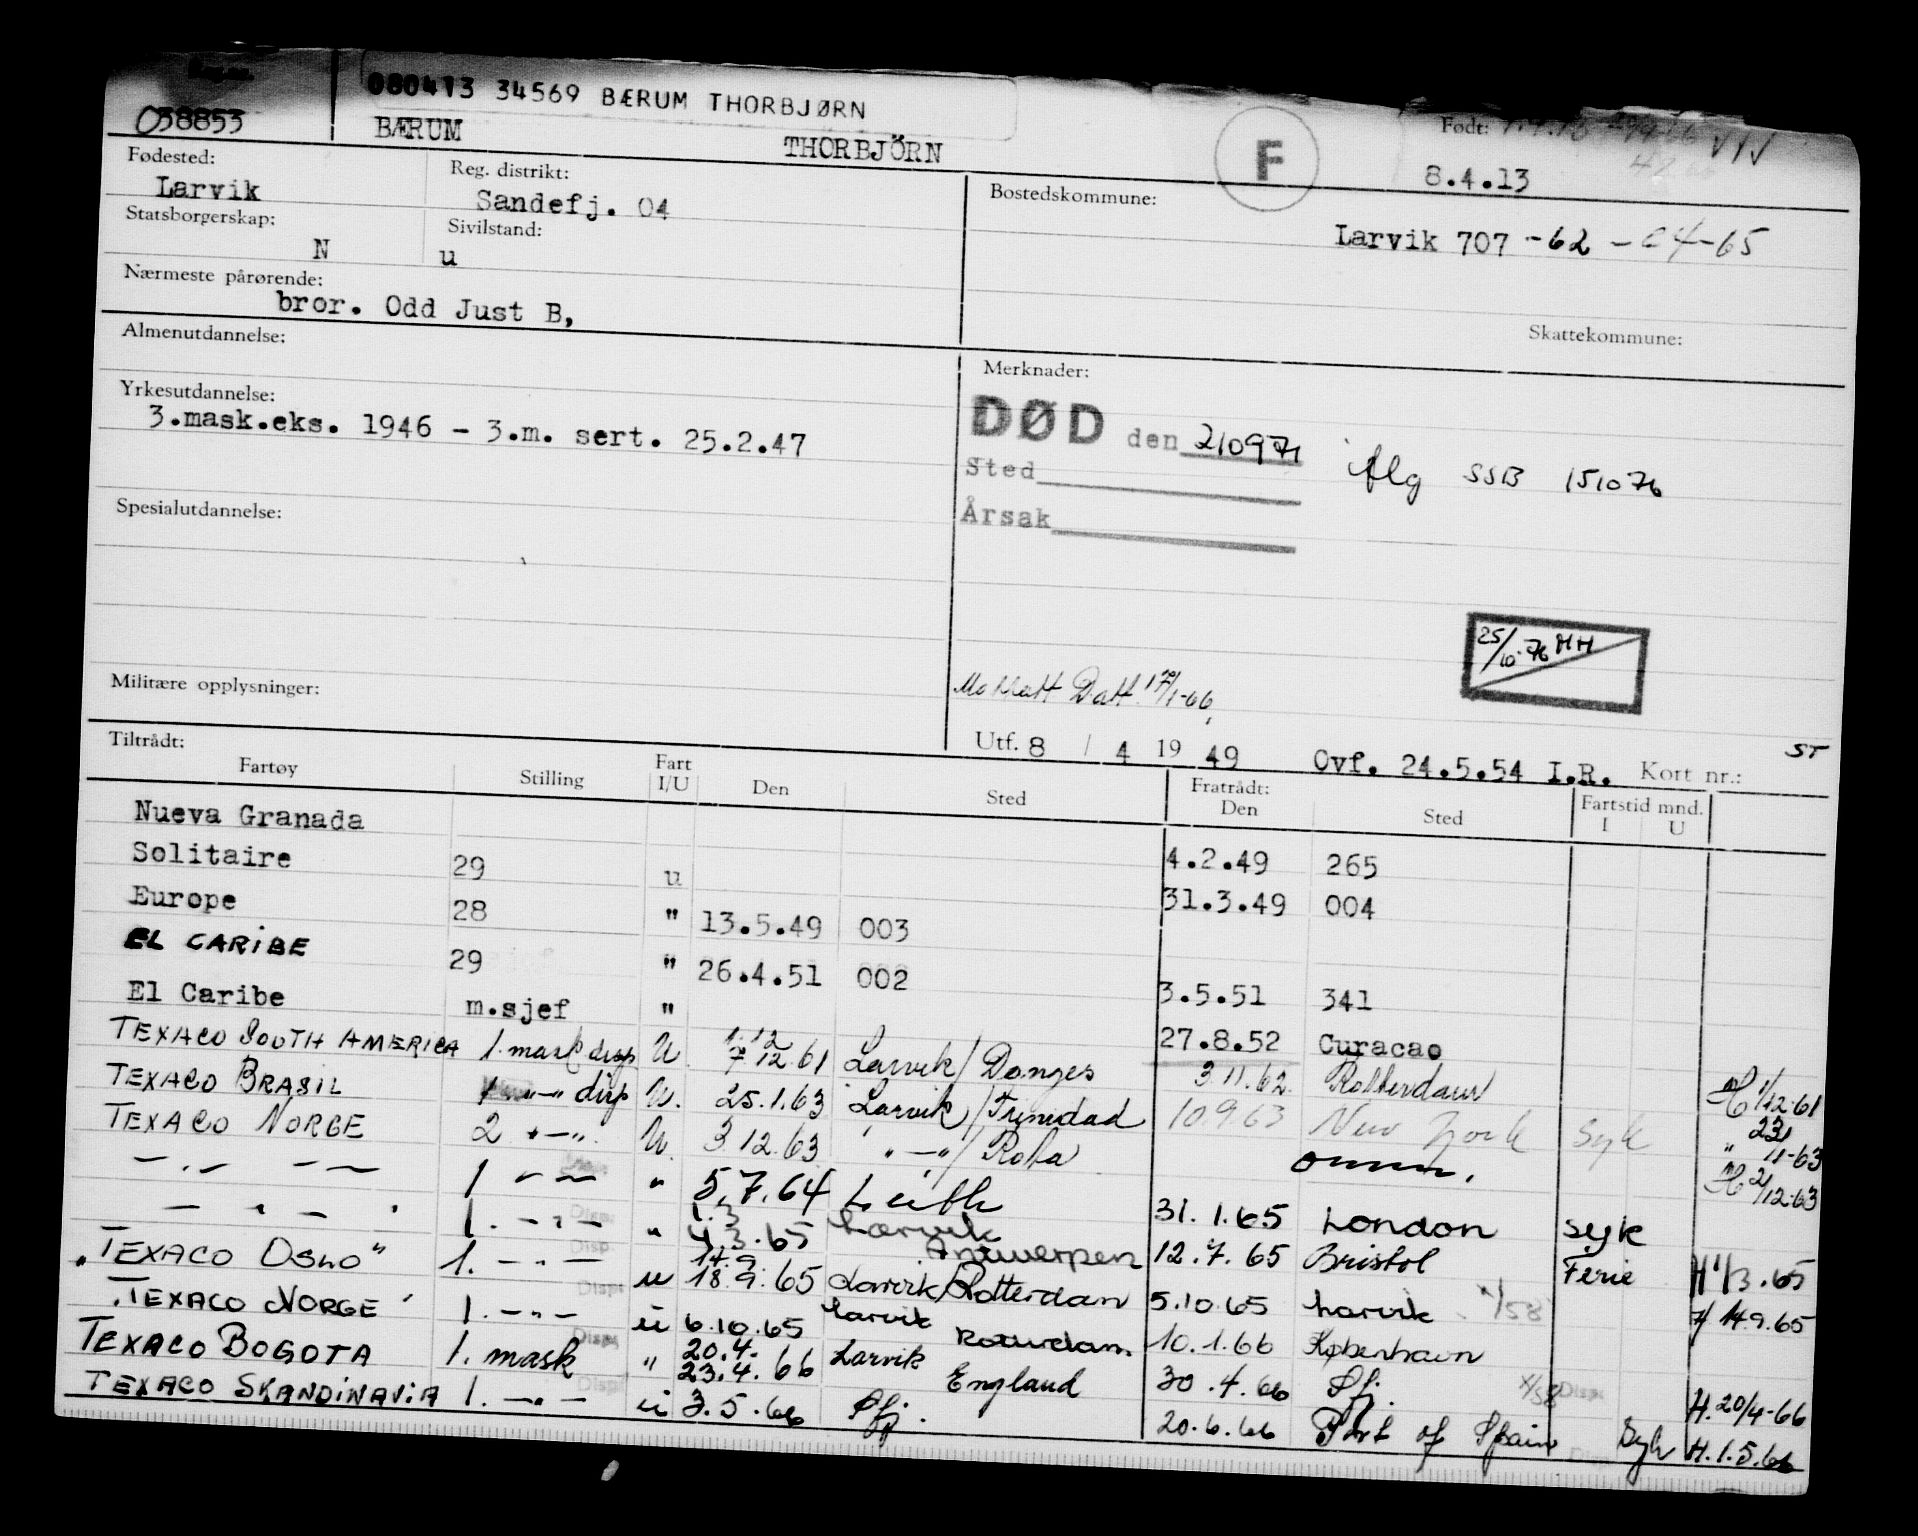 080413 34569 BÆRUM THORBJØRN
038853
BÆRUM THORBJÖRN
F
Født:
8.4.13
Fødested:
Larvik
Reg. distrikt:
Sandefj. 04
Bostedskommune:
Larvik 707 -62 - 04-65
Statsborgerskap:
N
Sivilstand:
u
Nærmeste pårørende:
bror. Odd Just B,
Skattekommune:
Almenutdannelse:
Merknader:
Yrkesutdannelse:
3.mask.eks. 1946 - 3.m. sert. 25.2.47
DØD den 210971 iflg SSB 151076
Sted
Årsak
Spesialutdannelse:
25/10-76 HH
Militære opplysninger:
Datt. 17/1-66
Utf. 8 / 4 19 49 Ovf. 24.5.54 I.R. Kort nr.: ST
Tiltrådt:
Fartøy Stilling Fart I/U Den Sted Fratrådt: Den Sted Fartstid mnd. I U
Nueva Granada 4.2.49 265
Solitaire 29 u 31.3.49 004
Europe 28 " 13.5.49 003
EL CARIBE 29 " 26.4.51 002 3.5.51 341
El Caribe m.sjef " 27.8.52 Curacao
TEXACO SOUTH AMERICA 1. mask disp U. 1.12 7.12.61 Larvik/Donges 3.11.62. Rotterdam H 1/12-61
TEXACO BRASIL 1 -"- disp U. 25.1.63 Larvik/Trinidad 10.9.63 New York Syk " 23/11-63
TEXACO NORGE 2 -"-. U. 3.12.63 " -"-/ Omm. H 2/12-63
-"- -"- 1 -"- " 5.7.64 Leith 31.1.65 London syk
- " - " 1. -"- " 1.3 4.3.65 Larvik Antwerpen 12.7.65 Bristol Ferie H 1/3.65
"TEXACO OSLO" 1. -"- u 14.9. 18.9.65 Larvik/Rotterdam 5.10.65 Larvik x/58 H 14.9.65
"TEXACO NORGE" 1. -"- u 6.10.65 Larvik Rotterdam 10.1.66 København
TEXACO BOGOTA 1. mask " 20.4. 23.4.66 Larvik England 30.4.66 Sfj. x/58 H. 20/4-66
TEXACO SKANDINAVIA 1. -"- u 3.5.66 Sfj. 20.6.66 Port of Spain Syk H.1.5.66